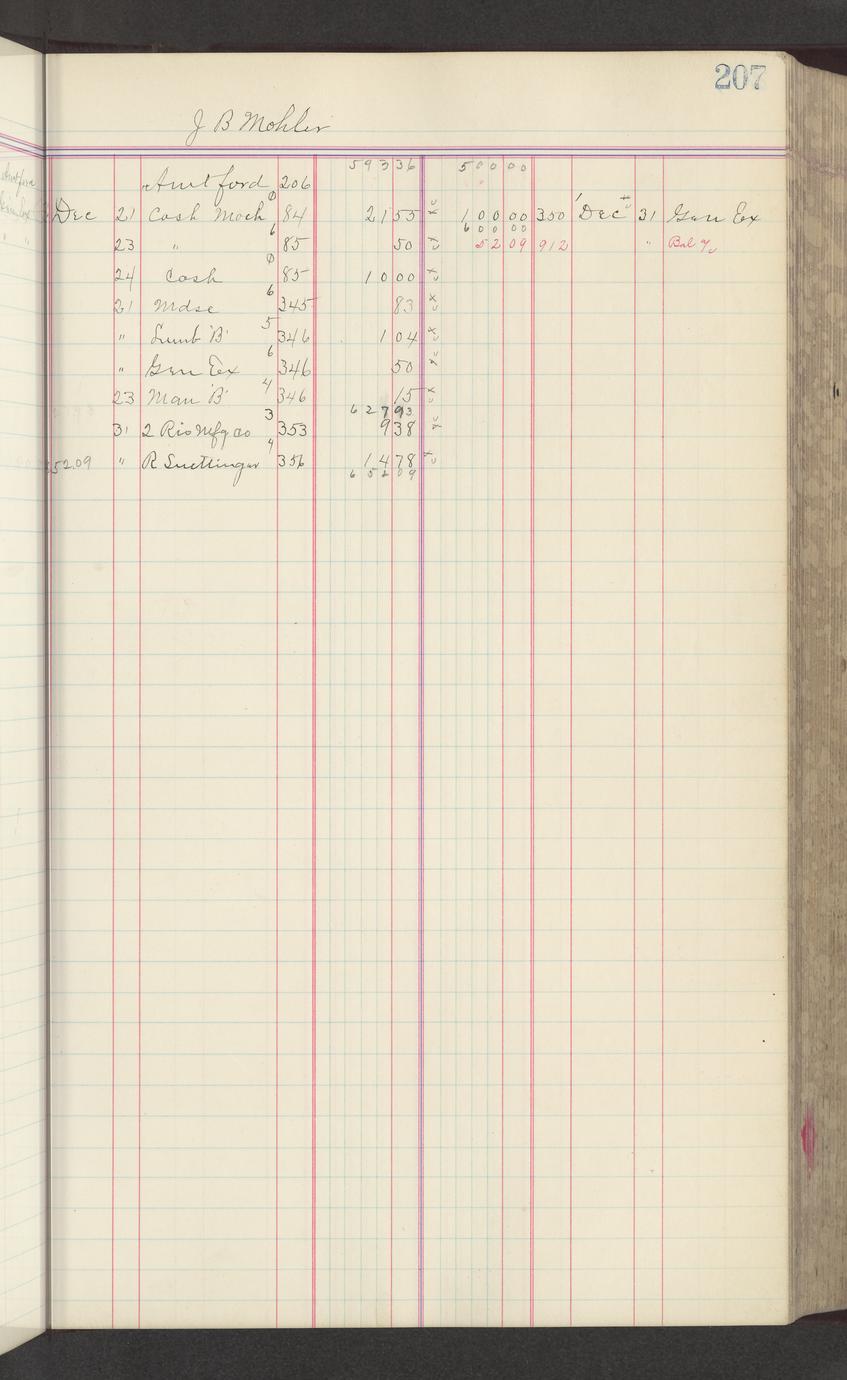 207
J B Mohler
Amt ford 206 593 36 500 00
Dec 21 Cash Moch 84 21 55 100 00 350 Dec 31 Gen Ex
600 00
23 " 85 50 52 09 912 " Bal
24 Cash 85 10 00
21 Mdse 345 83
" Lumb 'B' 346 1 04
" Gen Ex 346 50
23 Man 'B' 346 15
627 93
31 2 Rio Mfg Co 353 9 38
52.09 " R Suettinger 356 14 78
652 09